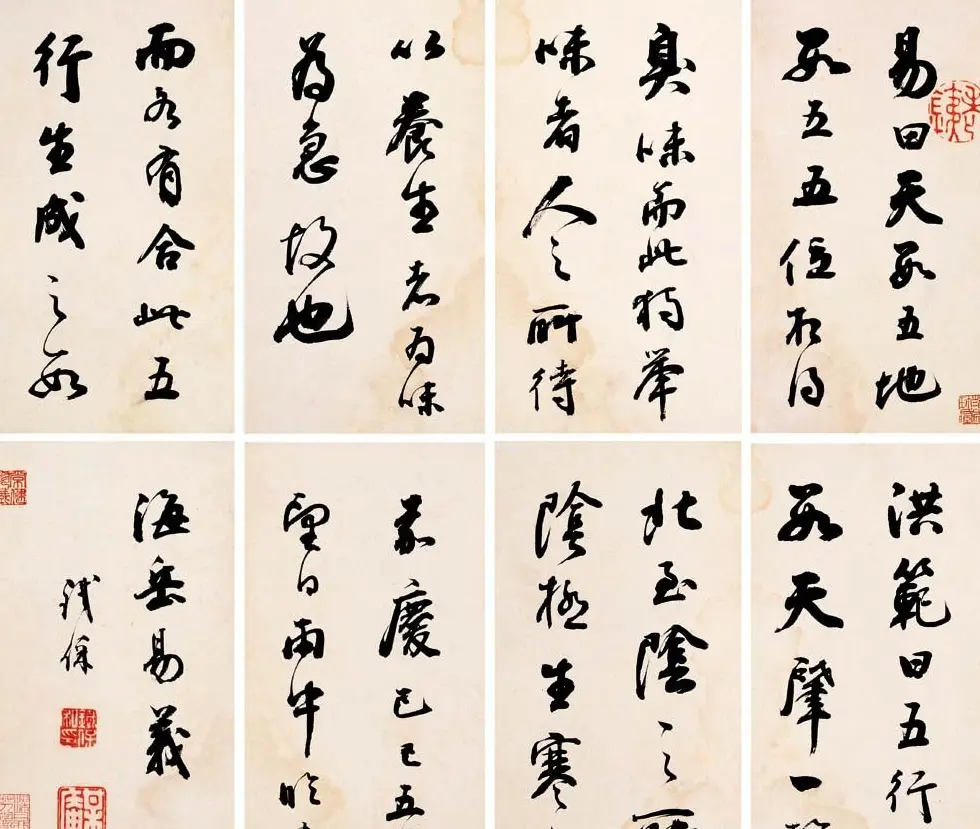 易曰天數五地
數五五位相得
臭味而此獨舉
味者人之所待
以養生者為味
為急故也
而各有合此五
行生成之數
洪範曰五行
數天肇一
北至陰〻之所
陰極生寒〻
嘉慶己巳五
望日雨中臨
海岳易義
鐵保